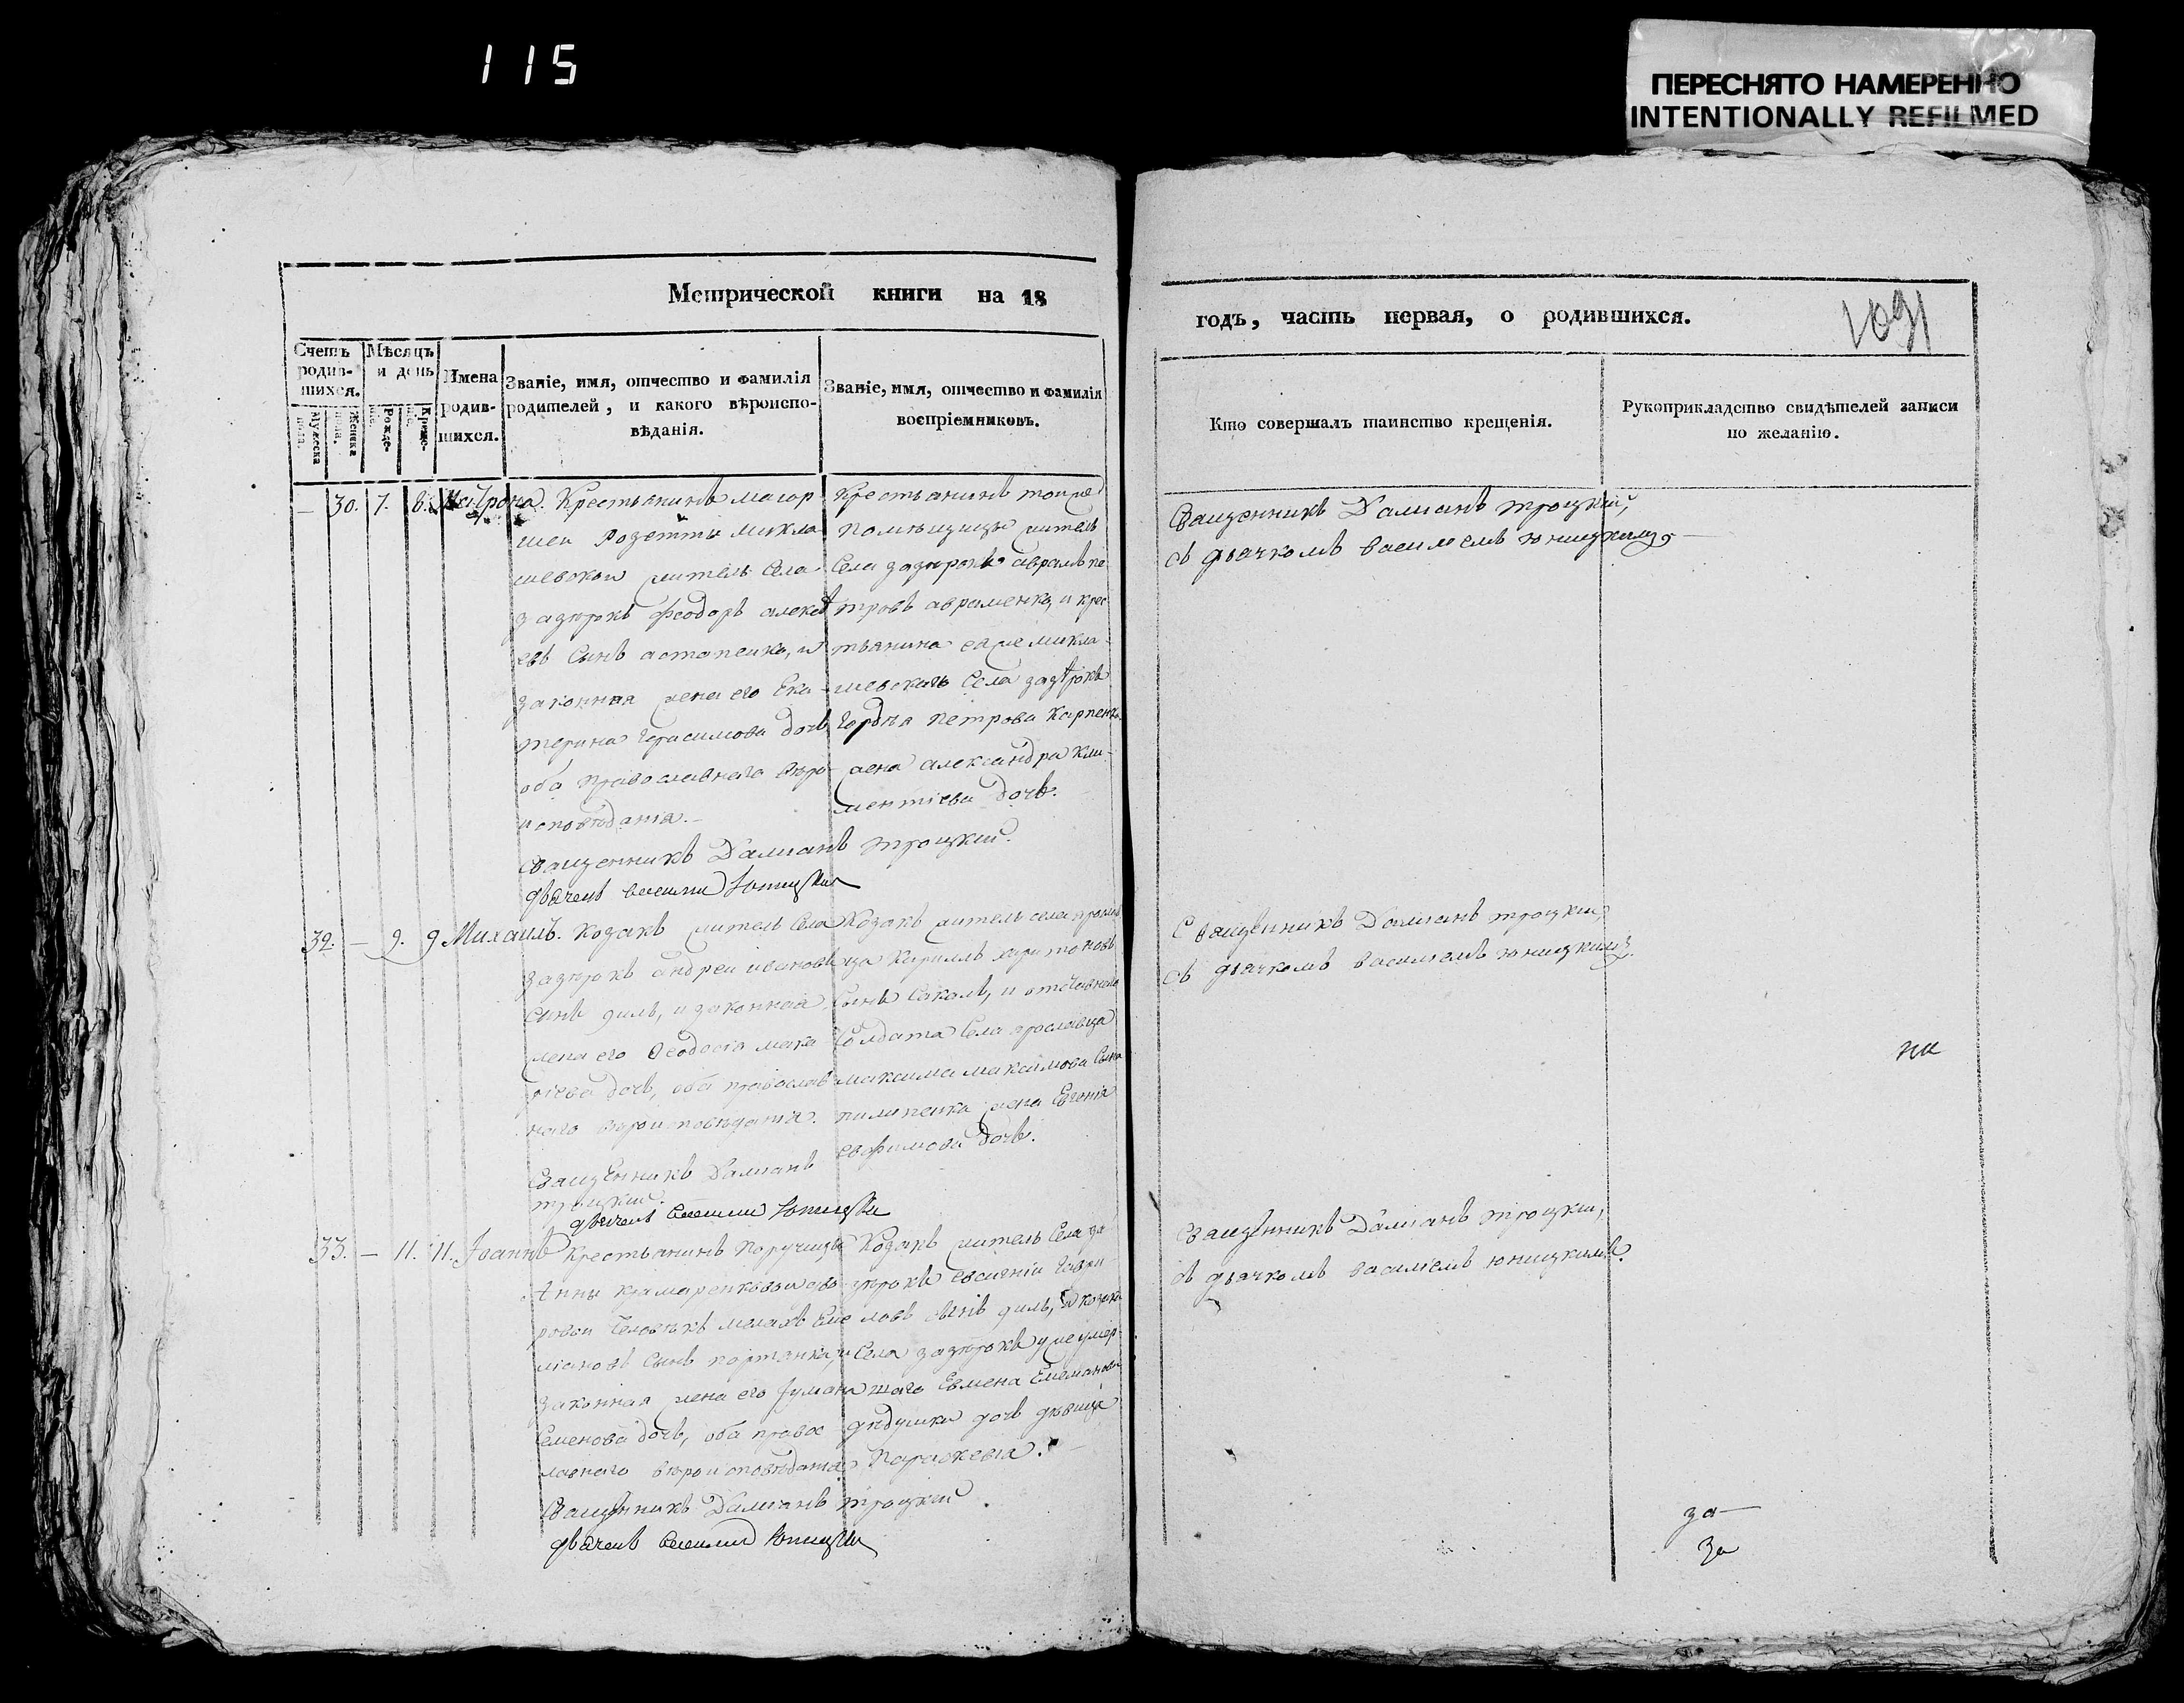 115
ПЕРЕСНЯТО НАМЕРЕННО
INTENTIONALLY REFILMED
Метрической книги на 18
годъ, часть первая, о родившихся.
1091
Счетъ родив-шихся.
Мужеска пола.
Женска пола.
Мѣсяцъ и день
Рожде-
Креще-
Имена родив-шихся.
Званіе, имя, отчество и фамилія родителей, и какого вѣроиспо-вѣданія.
Званіе, имя, отчество и фамилія воспріемниковъ.
Кто совершалъ таинство крещенія.
Рукоприкладство свидѣтелей записи по желанію.
— 30. 7. 8. Матрона.
Крестьянинъ маіор
ши Розетты микла
шевской житель Села
Задѣрокъ Феодоръ алексѣ
евъ Сынъ астапенко, и
законная жена его Ека-
терина Герасимова дочь
оба православнаго вѣро-
исповѣданія.—
Священникъ Даміанъ троцкий.
дьячекъ василий Юницкий
Крестьянинъ той же
помѣщицы житель
Села задѣрокъ аврамъ пе
тровъ авраменко, и крес
тьянина ея же микла-
шевской Села задѣрокъ
Гордѣя петрова Карпенк
жена александра Кли-
ментіева дочь.
Священникъ Даміанъ троцкий,
съ дьячкомъ василіемъ юницкимъ—
32. — 9. 9 Михаилъ.
Козакъ житель Села
Задѣрокъ андрей ивановъ
Сынъ диль, и законная
жена его Феодосія мака
ріева дочь, оба православ
наго вѣроисповѣданія.
Священникъ Даміанъ
троцкий.
дьячекъ василий Юницкий
Козакъ житель села
ца Кириллъ харитоновъ
Сынъ Сакалъ, и
Солдата Села ярославца
максима максимова Сына
пилипенка жена Евгенія
евфимова дочь.
Священникъ Даміанъ троцкий,
съ дьячкомъ василіемъ юницкимъ.
33. — 11. 11. Іоаннъ
Крестьянинъ поручицы
Анны
ровой человѣкъ Еме
ліановъ Сынъ портянка, и
законная жена его
Семенова дочь, оба право
лавнаго вѣроисповѣданія
Священникъ Даміанъ троцкий.
дьячекъ василий Юницкий
Козакъ житель Села за
дѣрокъ евсигній Гаври
ловъ Сынъ диль, и козака
Села задѣрокъ уже умер-
шаго Евмена Емеліанова
дѣдушки дочь дѣвица
Параскевіа.—
Священникъ Даміанъ троцкий,
съ дьячкомъ василіемъ юницкимъ.
за—
за